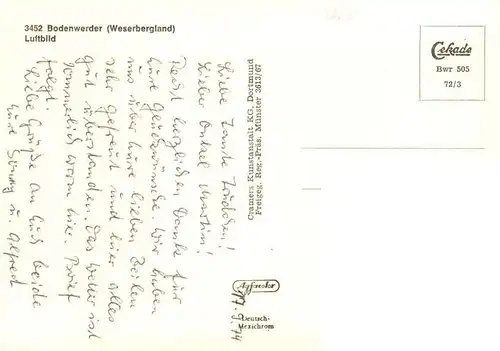 3452 Bodenwerder (Weserbergland)
Luftbild
Liebe Tante
Lieber Onkel Martin!
Recht herzlichen Dank für
Eure Glückwünsche. Wir haben
uns über Eure lieben Zeilen
sehr gefreut und hier alles
gut überstanden. Das Wetter ist
sommerlich warm hier. Brief
folgt.
Liebe Grüße an Euch beide
Eure u. Alfred
Cramers Kunstanstalt KG, Dortmund
Freigeg. Reg.-Präs. Münster 3613/67
Cekade
Bwr 505
72/3
Agfacolor
Deutsch-
Mezichrom
17.9.74